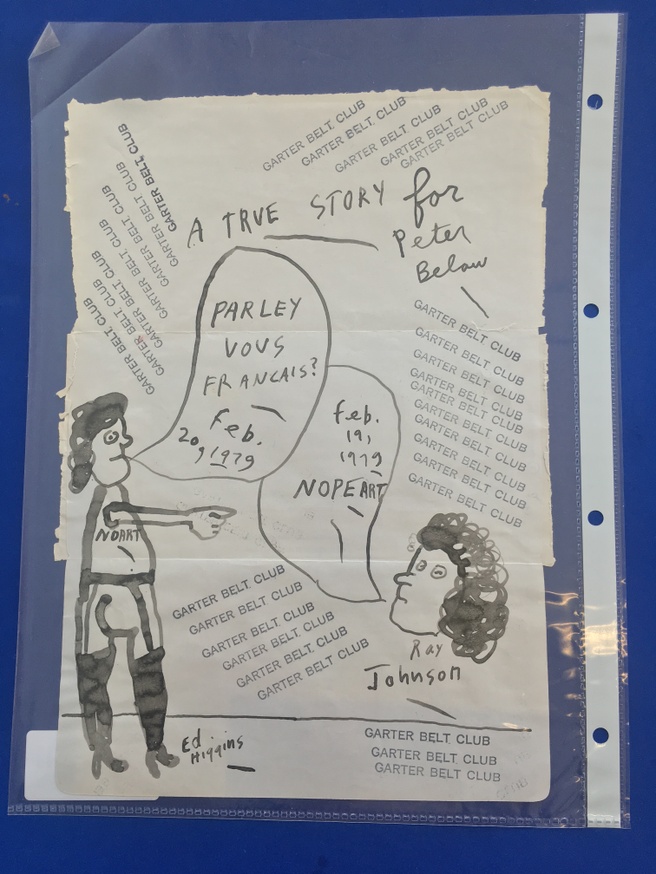 GARTER BELT CLUB
GARTER BELT CLUB
GARTER BELT CLUB
GARTER BELT CLUB
GARTER BELT CLUB
GARTER BELT CLUB
GARTER BELT CLUB
GARTER BELT CLUB
GARTER BELT CLUB
GARTER BELT CLUB
GARTER BELT CLUB
A TRUE STORY for
Peter
Below
PARLEY
VOUS
FRANCAIS?
Feb.
20, 1979
feb.
19,
1979
NOPEART
GARTER BELT CLUB
GARTER BELT CLUB
GARTER BELT CLUB
GARTER BELT CLUB
GARTER BELT CLUB
GARTER BELT CLUB
GARTER BELT CLUB
GARTER BELT CLUB
GARTER BELT CLUB
GARTER BELT CLUB
NOART
GARTER BELT CLUB
GARTER BELT CLUB
GARTER BELT CLUB
GARTER BELT CLUB
GARTER BELT CLUB
GARTER BELT CLUB
Ray
Johnson
Ed
Higgins
GARTER BELT CLUB
GARTER BELT CLUB
GARTER BELT CLUB